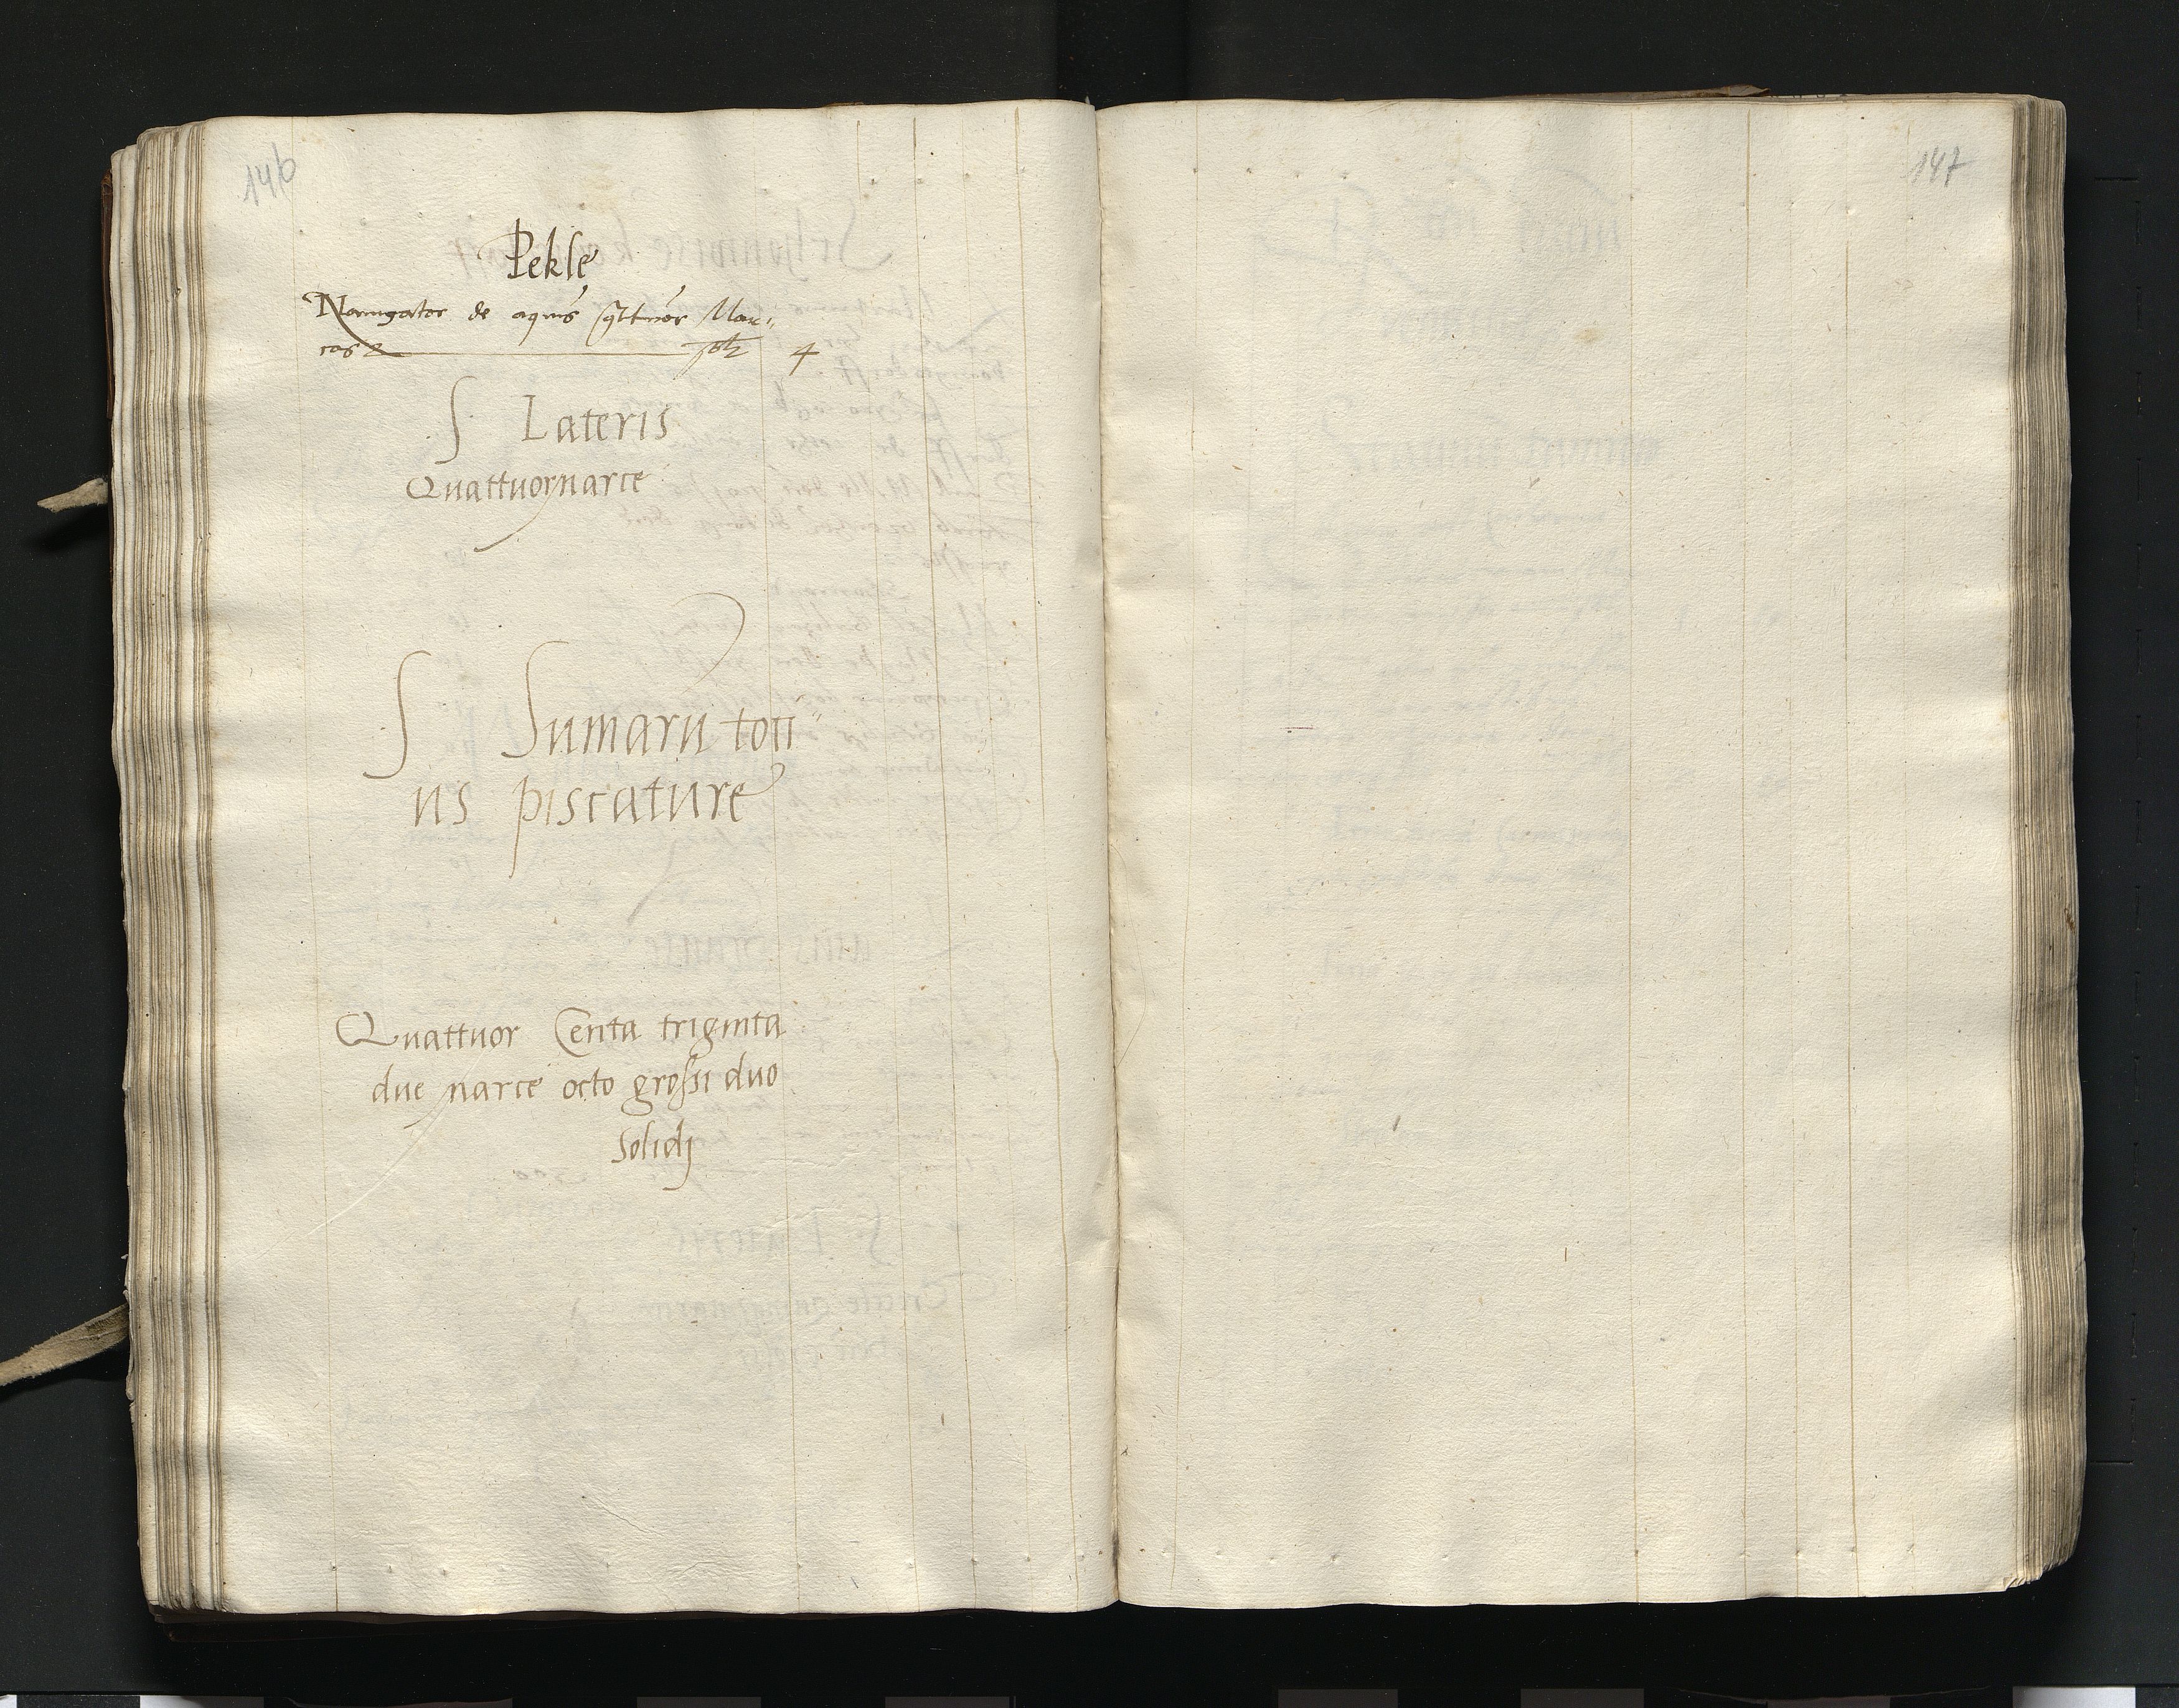 146
Pekle
Nauigator de aquis quatuor Mar=
cas solt 4
S Lateris
Quattuor marce
S Sumarii toti=
us piscature
Quattuor Centa triginta
due marce octo grossi duo
Solidj
147